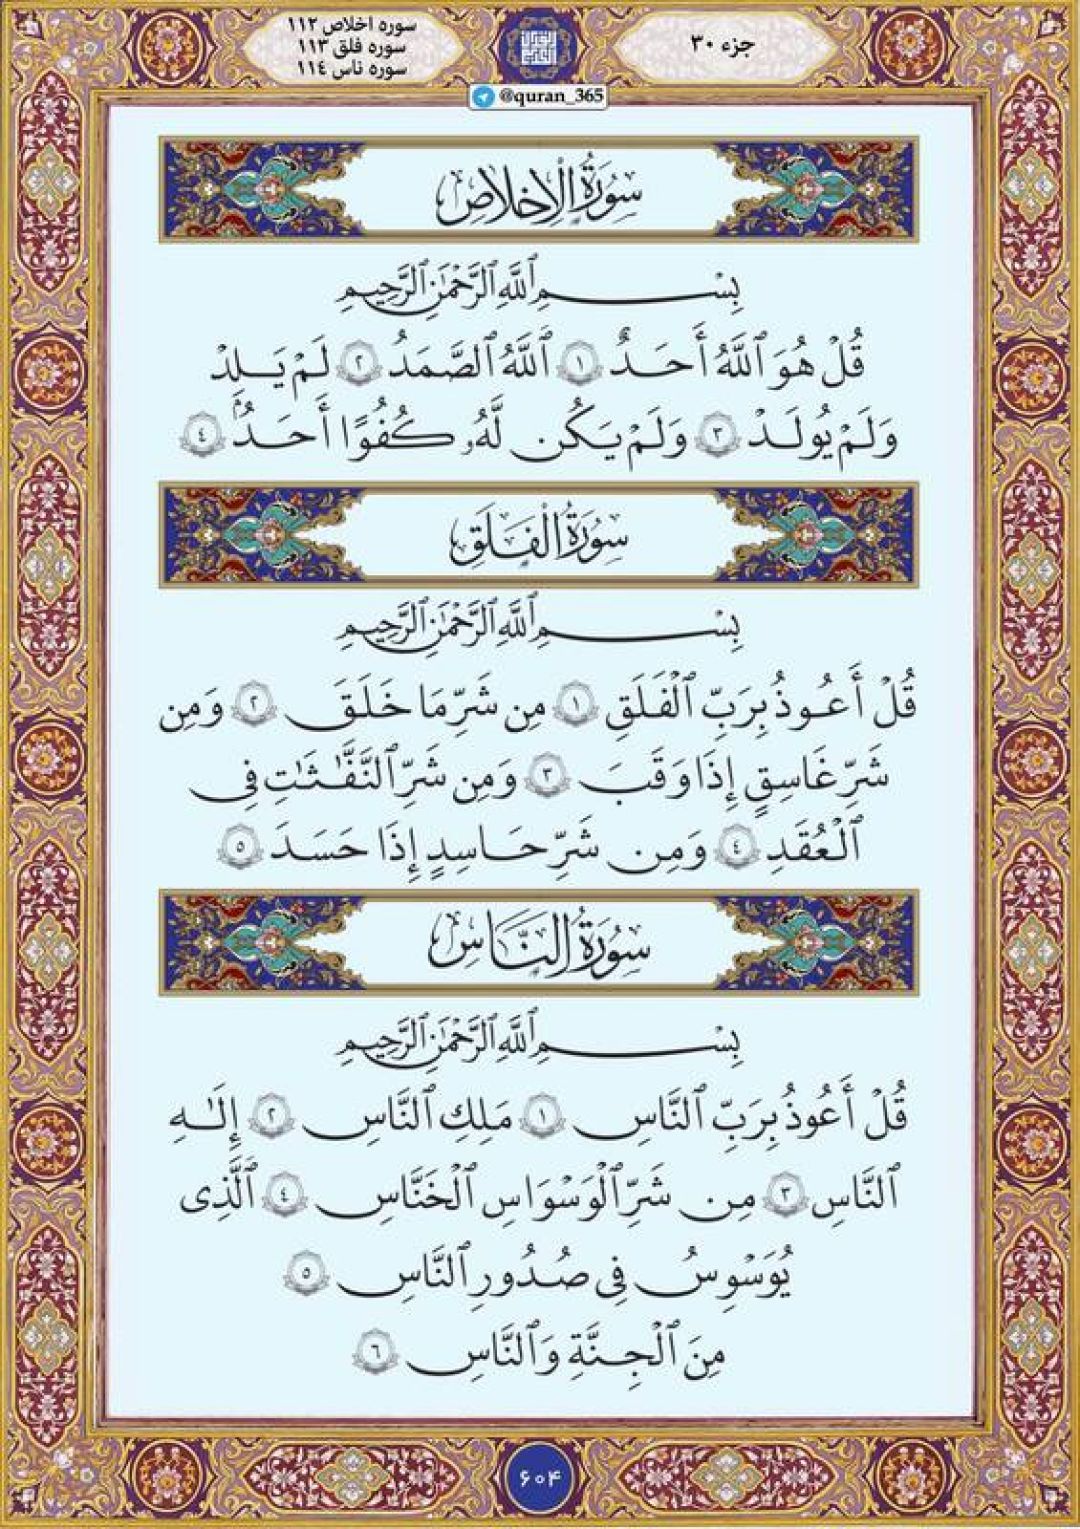 جزء ۳۰
سوره اخلاص ۱۱۲
سوره فلق ۱۱۳
سوره ناس ۱۱٤
@quran_365
سُورَةُ الْإِخْلَاصِ
بِسْمِ ٱللَّهِ ٱلرَّحْمَٰنِ ٱلرَّحِيمِ
قُلْ هُوَ ٱللَّهُ أَحَدٌ ١ ٱللَّهُ ٱلصَّمَدُ ٢ لَمْ يَلِدْ
وَلَمْ يُولَدْ ٣ وَلَمْ يَكُن لَّهُۥ كُفُوًا أَحَدٌۢ ٤
سُورَةُ الْفَلَقِ
بِسْمِ ٱللَّهِ ٱلرَّحْمَٰنِ ٱلرَّحِيمِ
قُلْ أَعُوذُ بِرَبِّ ٱلْفَلَقِ ١ مِن شَرِّ مَا خَلَقَ ٢ وَمِن
شَرِّ غَاسِقٍ إِذَا وَقَبَ ٣ وَمِن شَرِّ ٱلنَّفَّٰثَٰتِ فِى
ٱلْعُقَدِ ٤ وَمِن شَرِّ حَاسِدٍ إِذَا حَسَدَ ٥
سُورَةُ النَّاسِ
بِسْمِ ٱللَّهِ ٱلرَّحْمَٰنِ ٱلرَّحِيمِ
قُلْ أَعُوذُ بِرَبِّ ٱلنَّاسِ ١ مَلِكِ ٱلنَّاسِ ٢ إِلَٰهِ
ٱلنَّاسِ ٣ مِن شَرِّ ٱلْوَسْوَاسِ ٱلْخَنَّاسِ ٤ ٱلَّذِى
يُوَسْوِسُ فِى صُدُورِ ٱلنَّاسِ ٥
مِنَ ٱلْجِنَّةِ وَٱلنَّاسِ ٦
۶۰۴